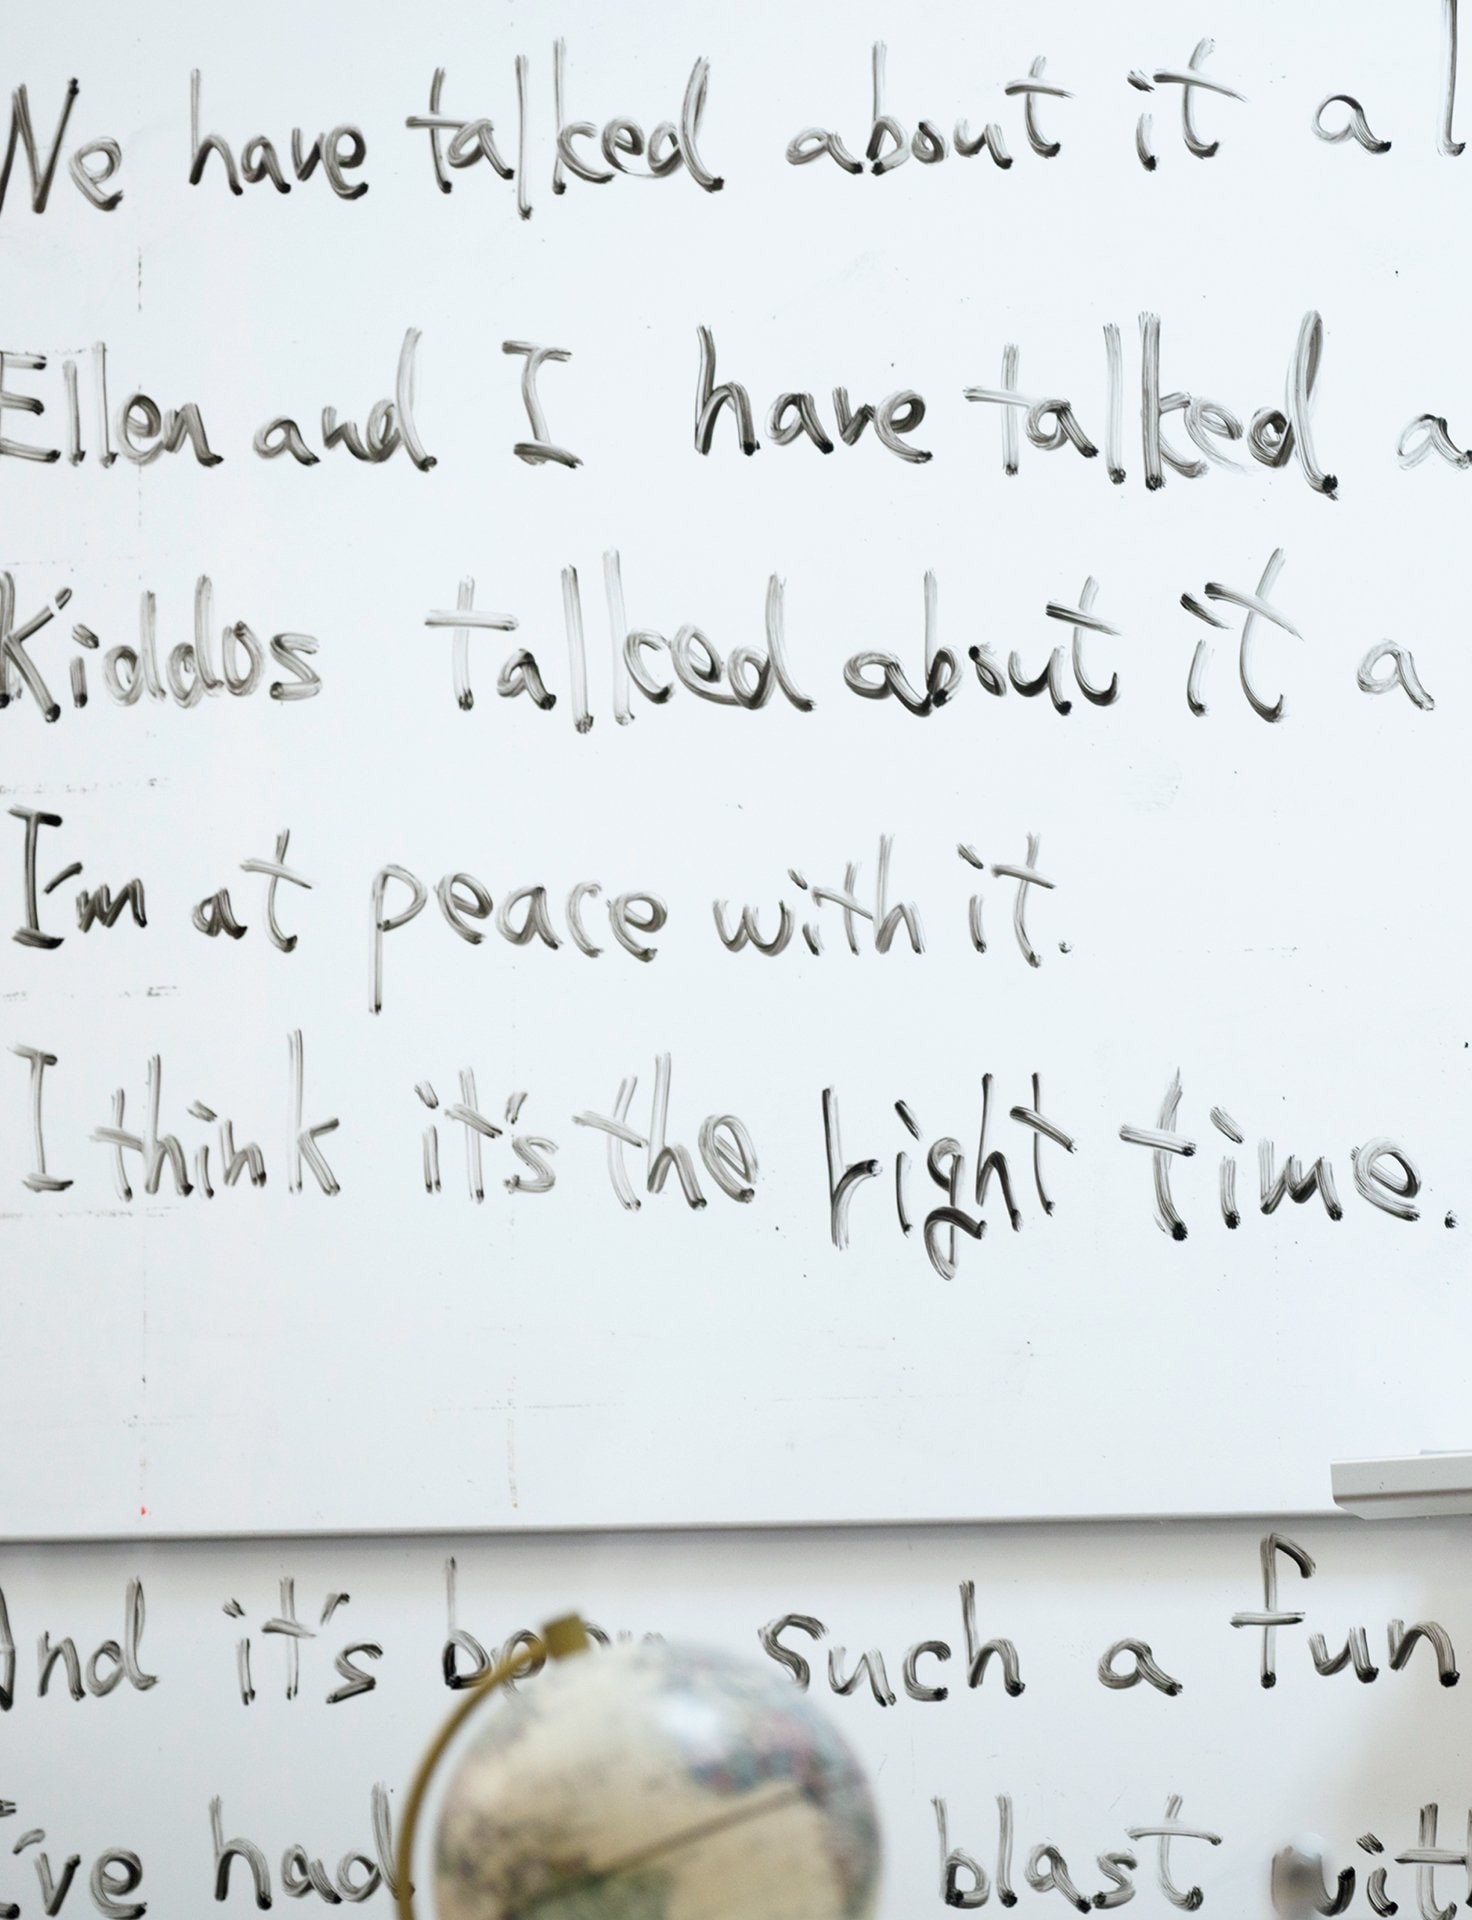 We have talked about it a l
Ellen and I have talked a
Kiddos talked about it a
I'm at peace with it.
I think it's the right time.
And it's such a fun
I've had blast with